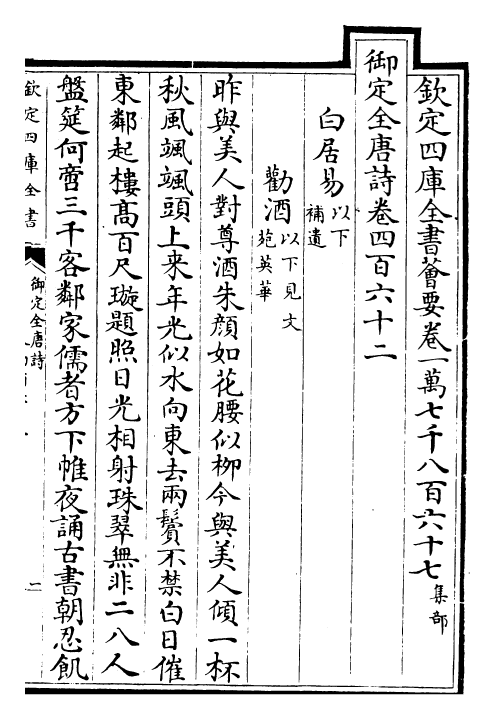 欽定四庫全書薈要卷一萬七千八百六十七 集部
御定全唐詩卷四百六十二
白居易 以下補遺
勸酒 以下見文苑英華
昨與美人對尊酒朱顏如花腰似栁今與美人傾一杯
秋風颯颯頭上来年光似水向東去兩鬢不禁白日催
東鄰起樓髙百尺璇題照日光相射珠翠無非二八人
盤筵何啻三千客鄰家儒者方下帷夜誦古書朝忍飢
欽定四庫全書
御定全唐詩
一